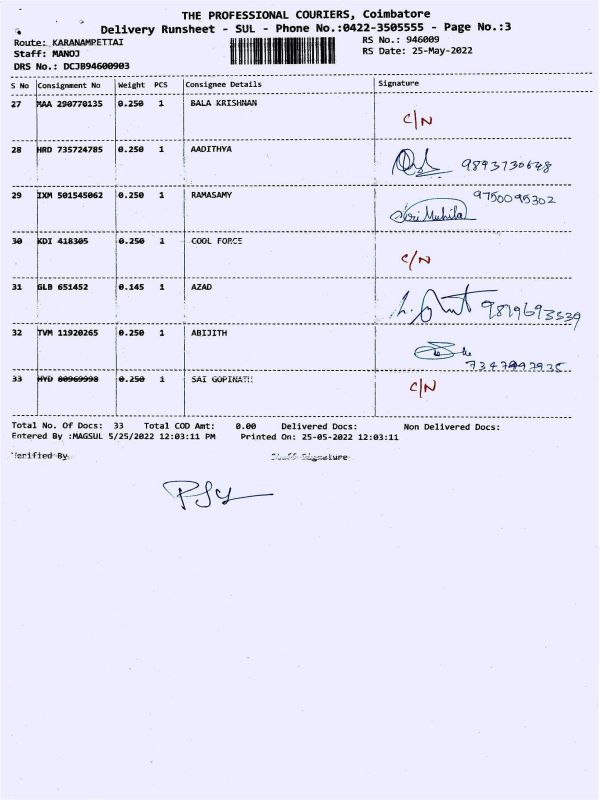 THE PROFESSIONAL COURIERS, Coimbatore
Delivery Runsheet - SUL - Phone No.:0422-3505555 - Page No.:3
Route: KARANAMPETTAI RS No.: 946009
Staff: MANOJ RS Date: 25-May-2022
DRS No.: DCJB94600903
S No Consignment No Weight PCS Consignee Details Signature
27 MAA 290770135 0.250 1 BALA KRISHNAN C/N
28 HRD 735724785 0.250 1 AADITHYA 9893730648
29 IXM 501545062 0.250 1 RAMASAMY 9750095302
Sori Muhila
30 KDI 418305 0.250 1 COOL FORCE C/N
31 GLB 651452 0.145 1 AZAD 9819693539
32 TVM 11920265 0.250 1 ABIJITH
33 HYD 80969998 0.250 1 SAI GOPINATH C/N
Total No. Of Docs: 33 Total COD Amt: 0.00 Delivered Docs: Non Delivered Docs:
Entered By :MAGSUL 5/25/2022 12:03:11 PM Printed On: 25-05-2022 12:03:11
Verified By Staff Signature